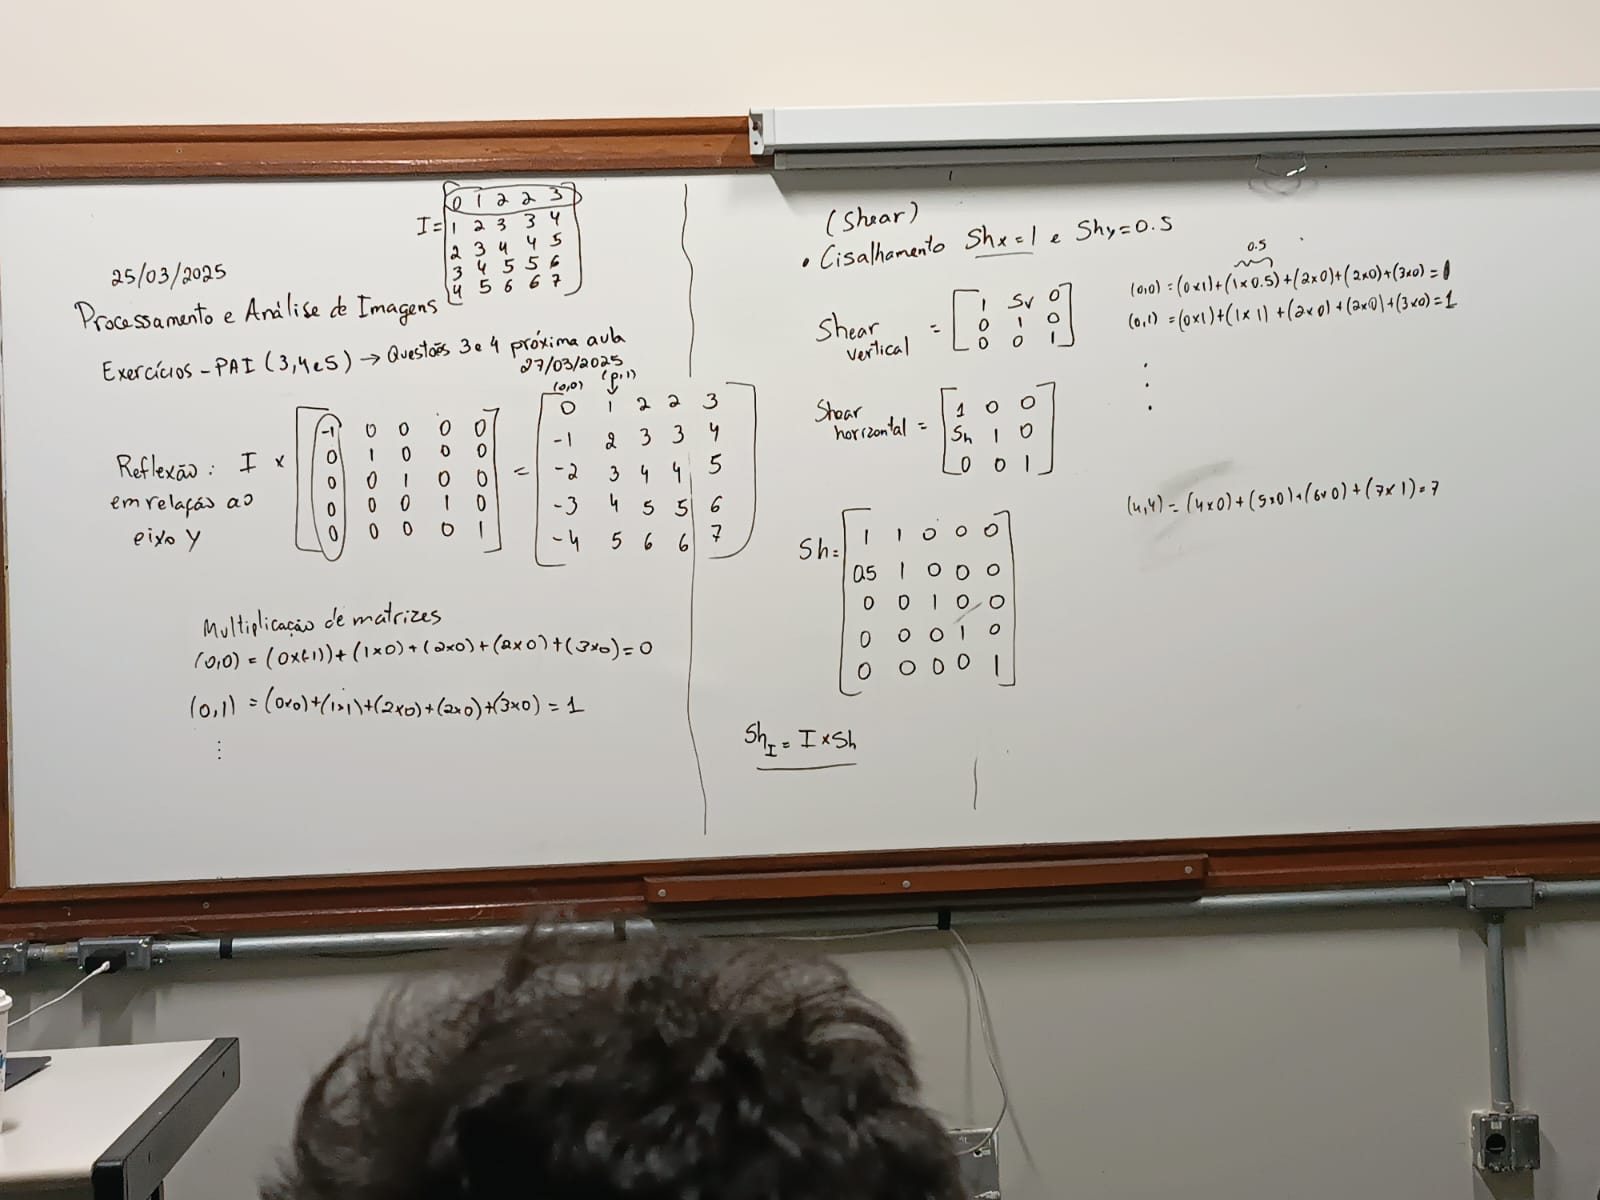 I =
0 1 2 2 3
1 2 3 3 4
2 3 4 4 5
3 4 5 5 6
4 5 6 6 7
25/03/2025
Processamento e Análise de Imagens
Exercícios - PAI (3,4e5) → Questões 3 e 4 próxima aula
27/03/2025
Reflexão: I ×
em relação ao
eixo Y
-1 0 0 0 0
0 1 0 0 0
0 0 1 0 0
0 0 0 1 0
0 0 0 0 1
=
(0,0)
0 1 2 2 3
-1 2 3 3 4
-2 3 4 4 5
-3 4 5 5 6
-4 5 6 6 7
Multiplicação de matrizes
(0,0) = (0x(-1)) + (1x0) + (2x0) + (2x0) + (3x0) = 0
(0,1) = (0x0)+(1x1)+(2x0)+(2x0)+(3x0) = 1
⋮
(Shear)
• Cisalhamento Shx=1 e Shy=0.5
Shear
vertical =
1 Sv 0
0 1 0
0 0 1
Shear
horizontal =
1 0 0
Sh 1 0
0 0 1
Sh=
1 1 0 0 0
0.5 1 0 0 0
0 0 1 0 0
0 0 0 1 0
0 0 0 0 1
ShI = I × Sh
0.5
(0,0) = (0x1)+(1x0.5)+(2x0)+(2x0)+(3x0) =
(0,1) = (0x1)+(1x1)+(2x0)+(2x0)+(3x0)=1
⋮
(4,4) = (4x0)+(5x0)+(6x0)+(7x1)=7